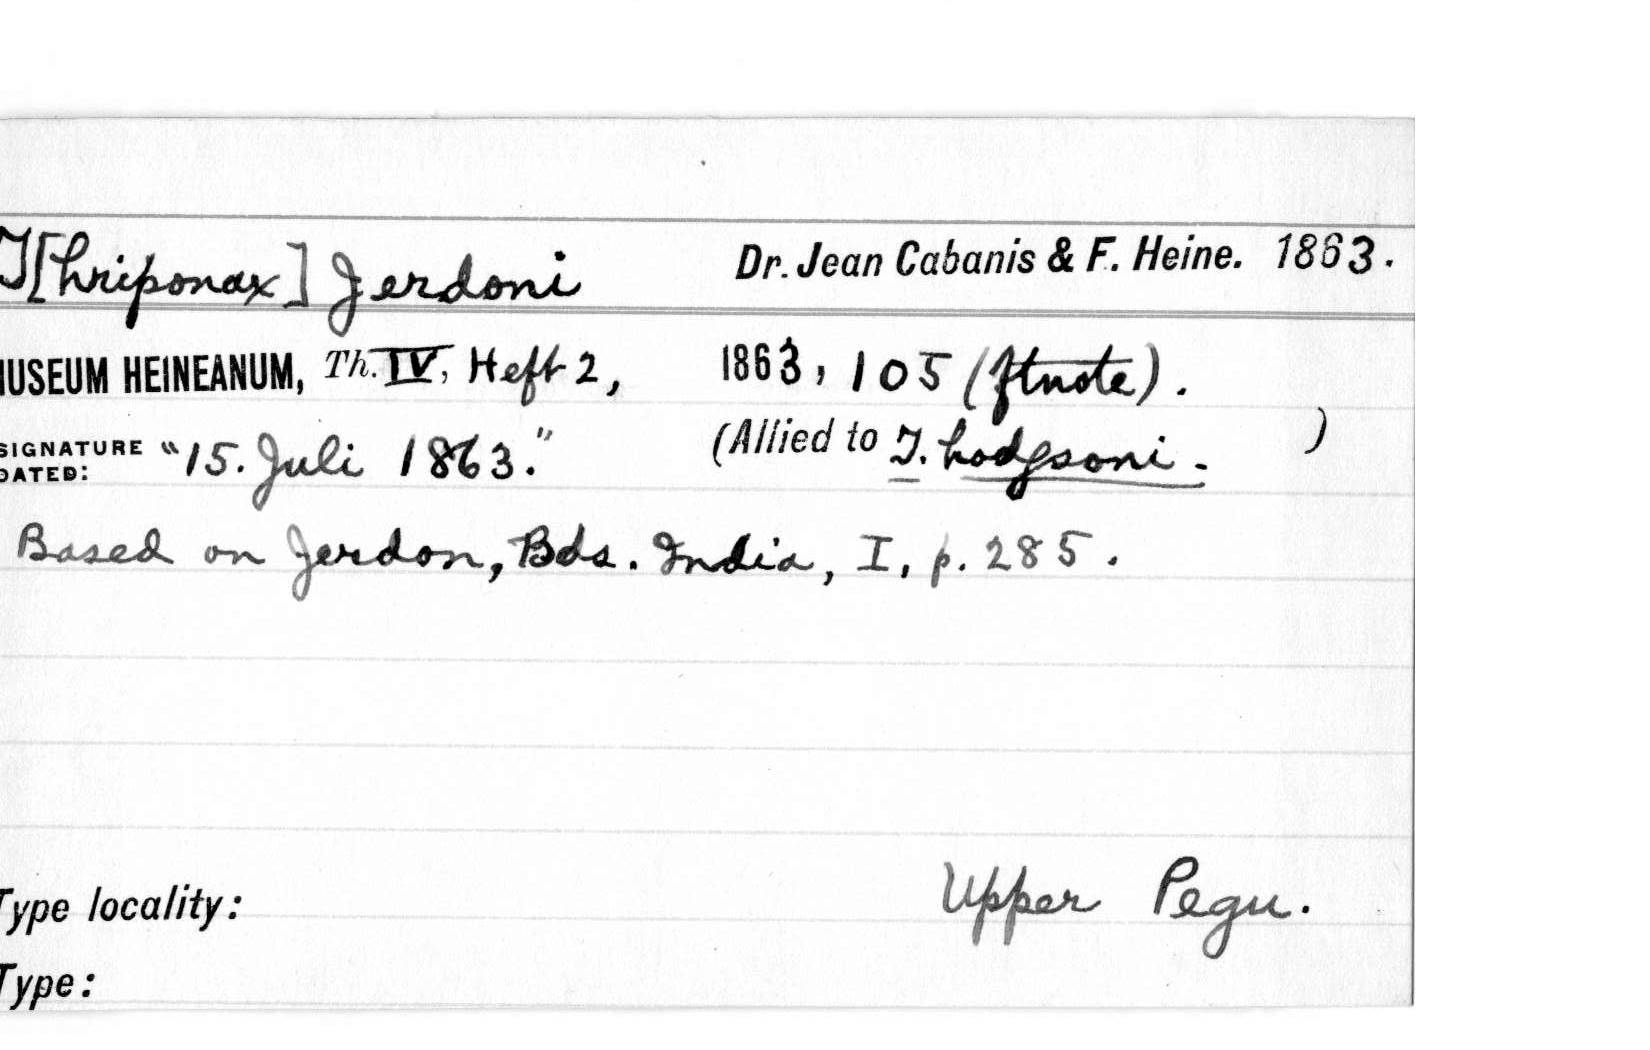 T[hriponax] Jerdoni Dr. Jean Cabanis & F. Heine. 1863.
MUSEUM HEINEANUM, Th. IV, Heft 2, 1863, 105 (ftnote).
SIGNATURE DATED: "15. Juli 1863." (Allied to T. hodgsoni. )
Based on Jerdon, Bds. India, I, p. 285.
Type locality: Upper Pegu.
Type: